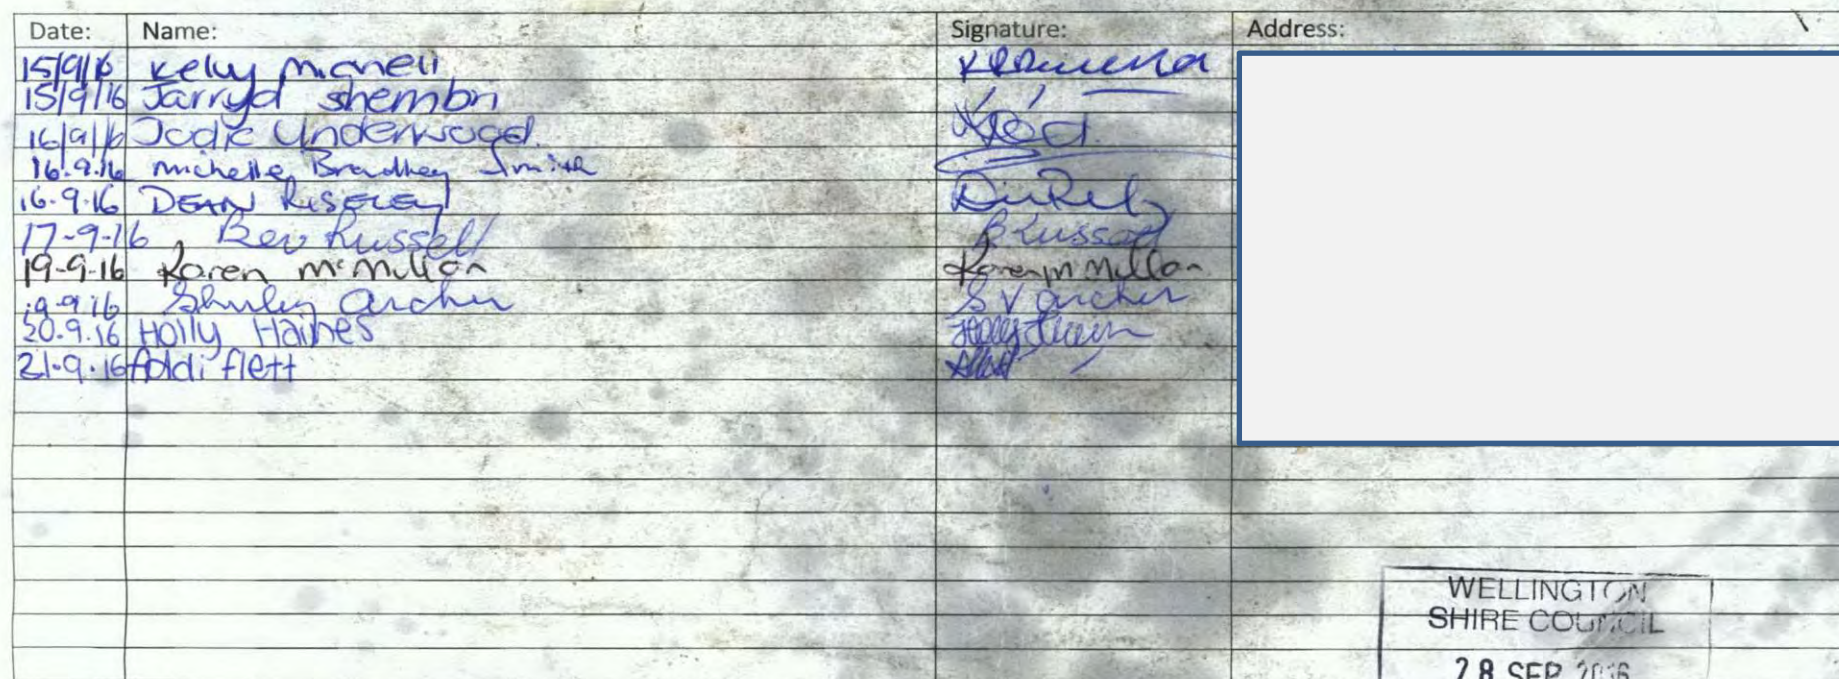 Date: Name: Signature: Address:
15/9/16 Kelly
15/9/16 Jarryd Shembri
16/9/16 Jodie Underwood.
16.9.16 Michelle Bradley Smith
16.9.16 DEAN RISELEY
17-9-16 Bev Russell B Russell
19-9-16 Karen McMillan Karen McMillan
19.9.16 Shirley Archer S V Archer
20.9.16 Holly Haines
21.9.16 Addi flett
WELLINGTON
SHIRE COUNCIL
28 SEP 2016